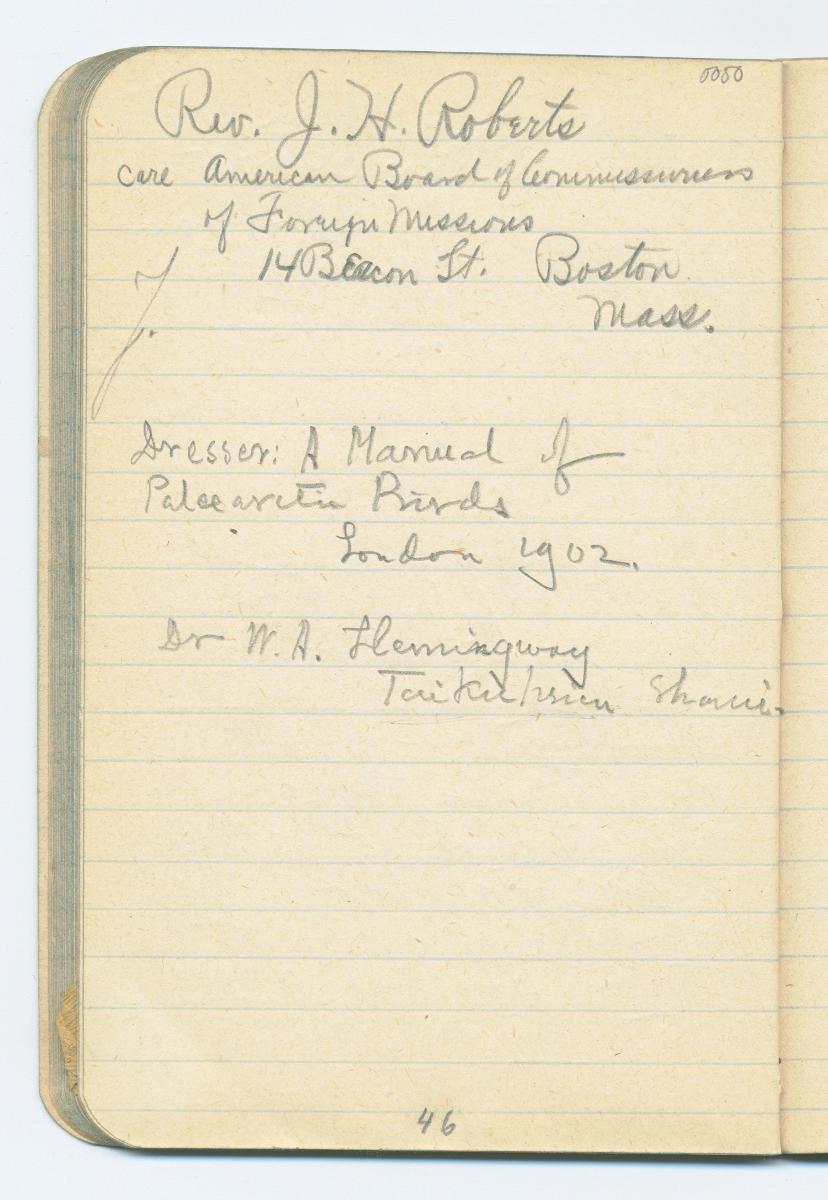 Rev. J. H. Roberts
care American Board of Commissioners
of Foreign Missions
14 Beacon St. Boston
Mass.
Dresser: A Manual of
Palaearctic Birds
London 1902.
Dr W. A. Hemingway
Taikuhsien Shansi.
46